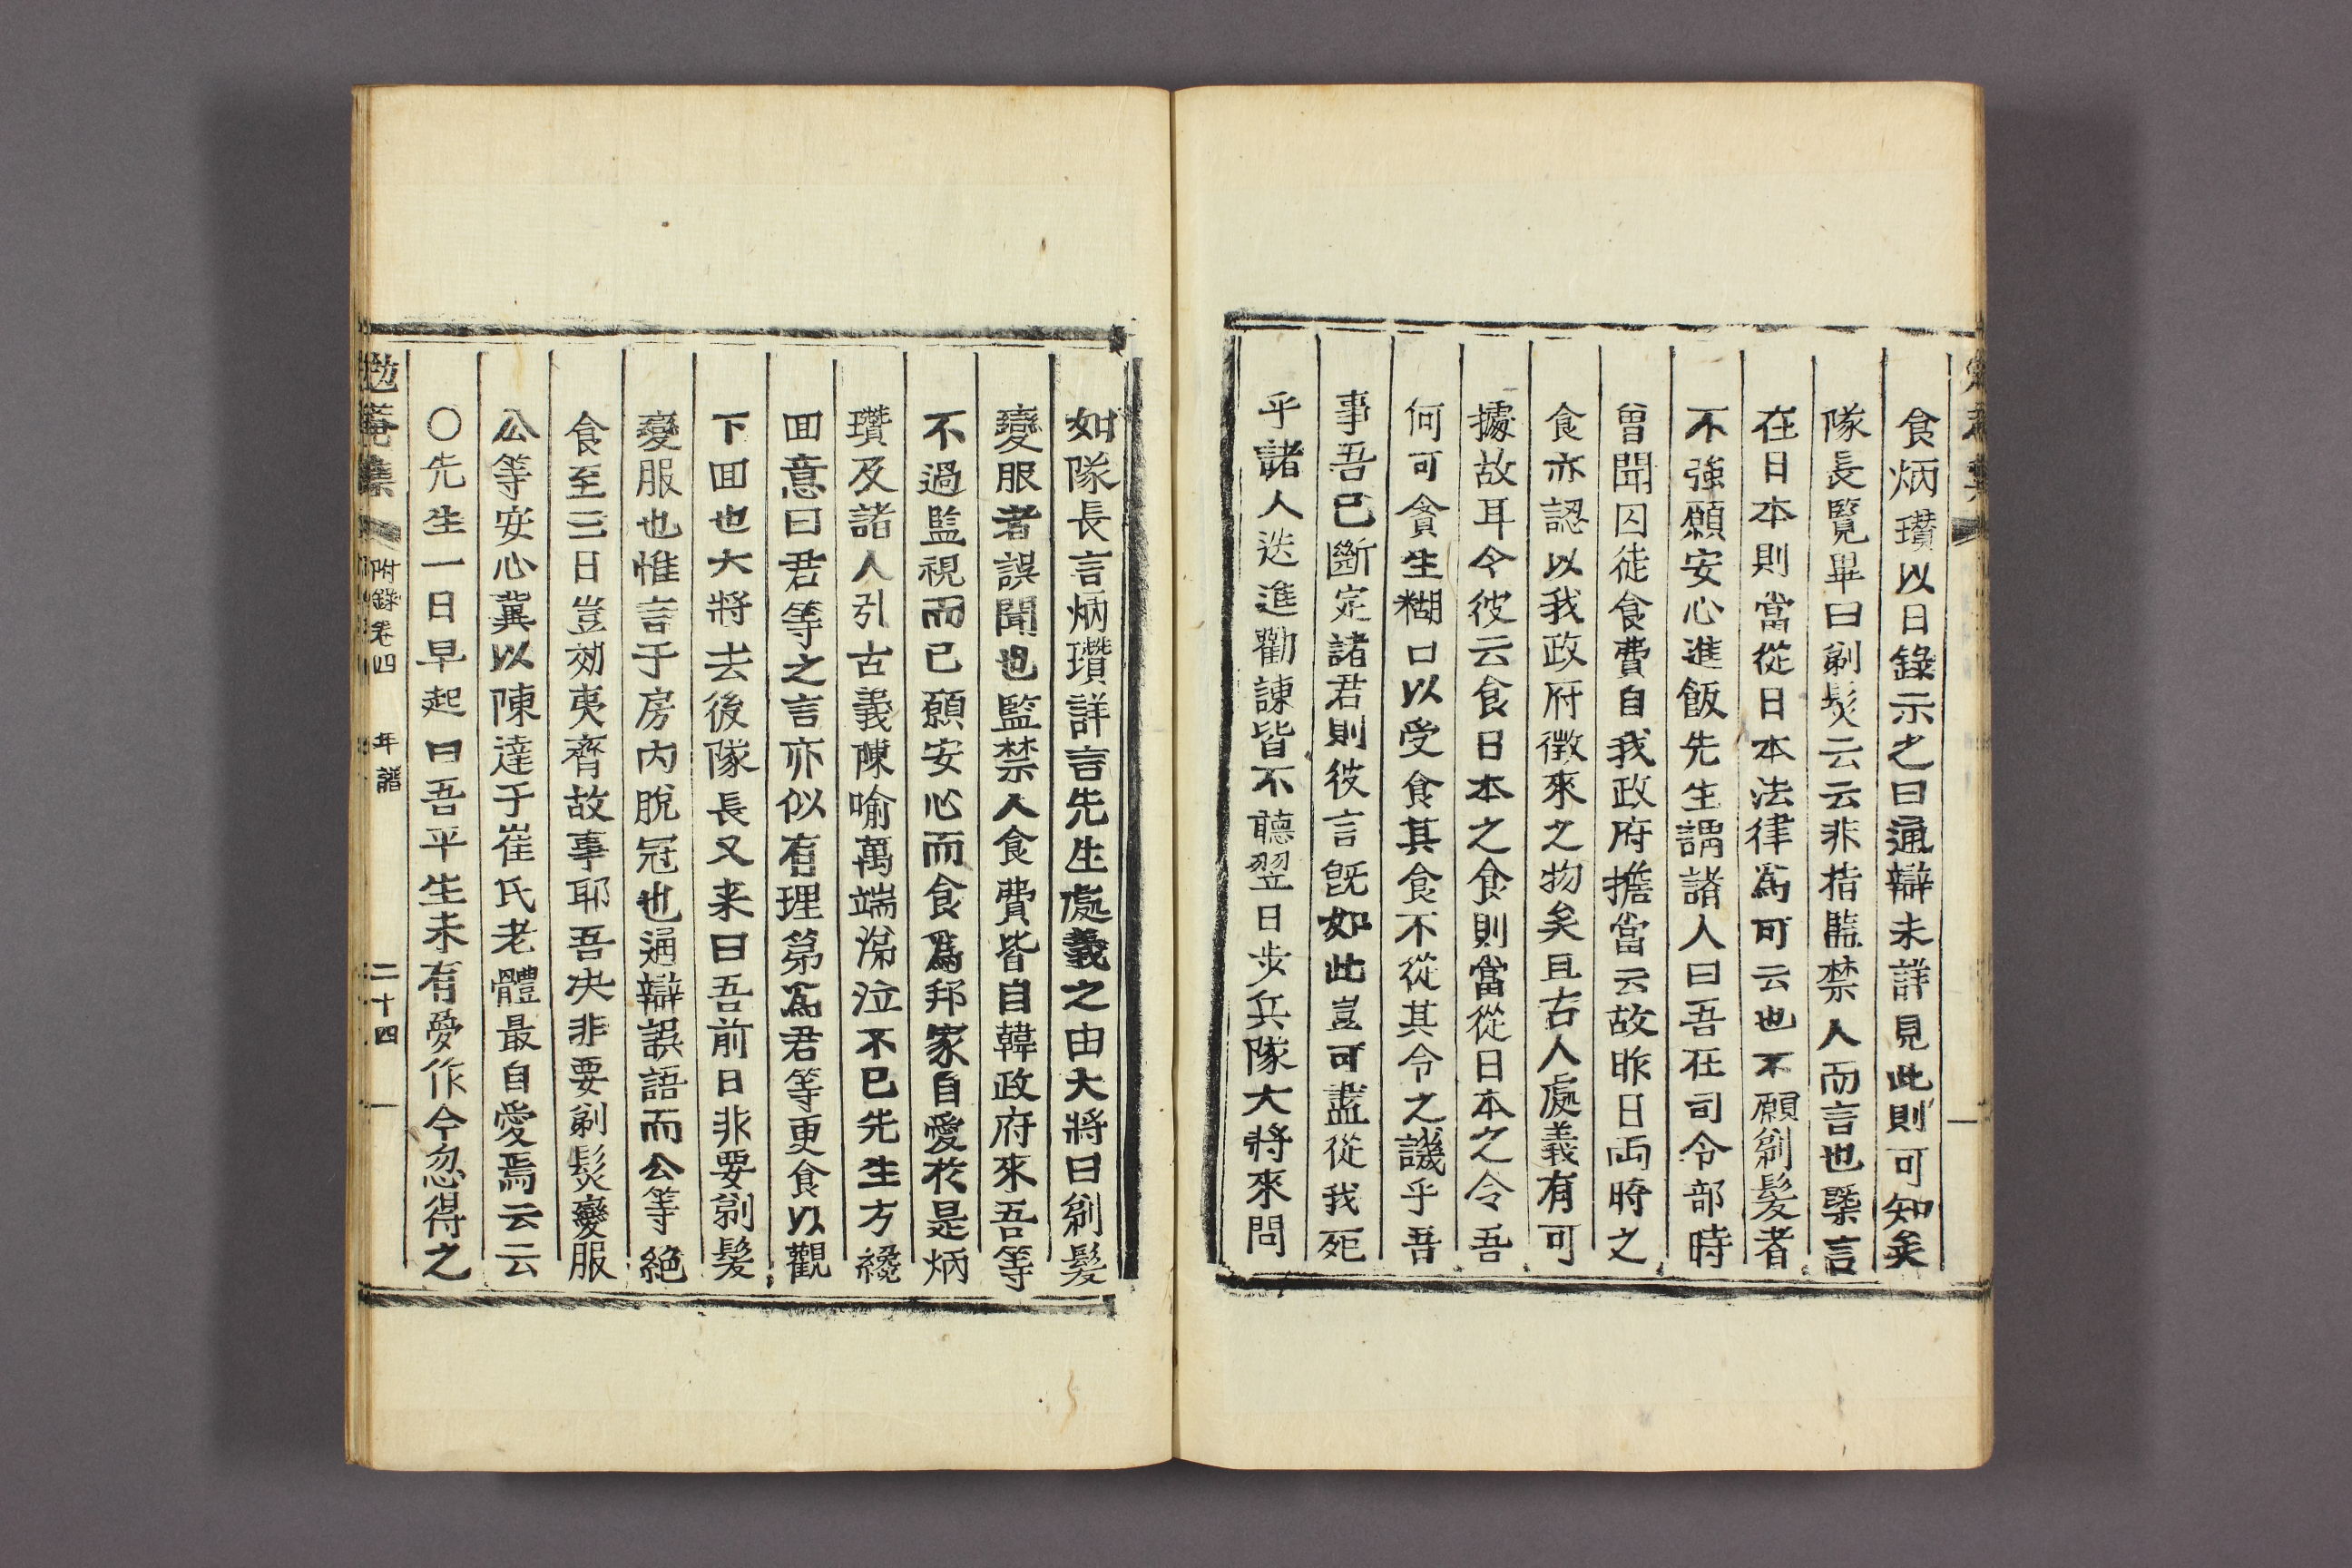 食炳瓚以日錄示之曰通辯未詳見此則可知矣
隊長覽畢曰剃髮云云非指監禁人而言也槩言
在日本則當從日本法律爲可云也不願剃髮者
不強願安心進飯先生謂諸人曰吾在司令部時
曾聞囚徒食費自我政府擔當云故昨日両時之
食亦認以我政府徵來之物矣且古人處義有可
據故耳今彼云食日本之食則當從日本之令吾
何可貪生糊口以受食其食不從其令之譏乎吾
事吾已斷定諸君則彼言旣如此豈可盡從我死
乎諸人迭進勸諫皆不聽翌日步兵隊大將來問
如隊長言炳瓚詳言先生處義之由大將曰剃髮
變服者誤聞也監禁人食費皆自韓政府來吾等
不過監視而已願安心而食爲邦家自愛於是炳
瓚及諸人引古義陳喻萬端涕泣不已先生方纔
回意曰君等之言亦似有理第爲君等更食以觀
下回也大將去後隊長又来曰吾前日非要剃髮
變服也惟言于房内脫冠也通辯誤語而公等絶
食至三日豈効夷齊故事耶吾决非要剃髮變服
公等安心冀以陳達于崔氏老體最自愛焉云云
○先生一日早起曰吾平生未有愛作今忽得之
勉菴集 附錄卷四 年譜 二十四